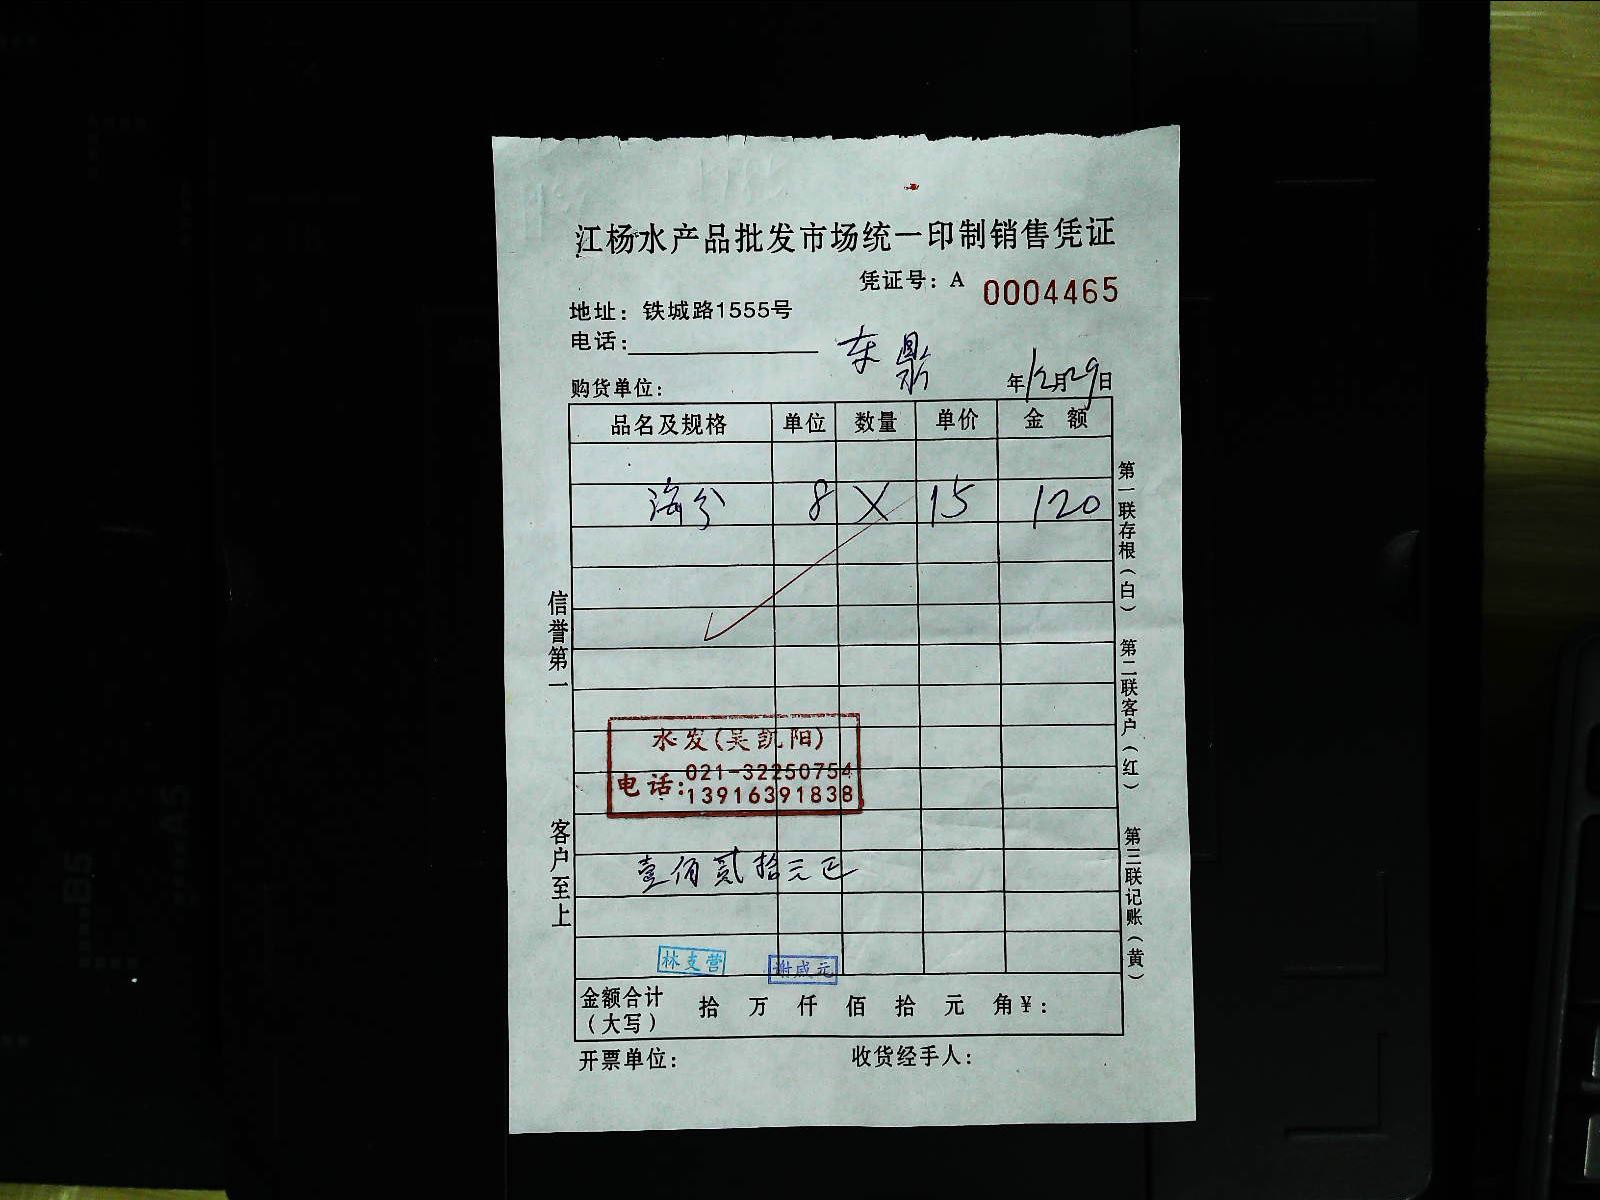 江杨水产品批发市场统一印制销售凭证
凭证号：A 0004465
地址：铁城路1555号
电话：
东鼎
购货单位：
年12月29日
品名及规格 单位 数量 单价 金额
海分 8 X 15 120
水发(吴凯阳)
电话:021-32250754
13916391838
壹佰贰拾元正
林支营 谢咸元
金额合计（大写） 拾 万 仟 佰 拾 元 角￥：
开票单位： 收货经手人：
信誉第一 客户至上
第一联存根（白） 第二联客户（红） 第三联记账（黄）
B5
A5